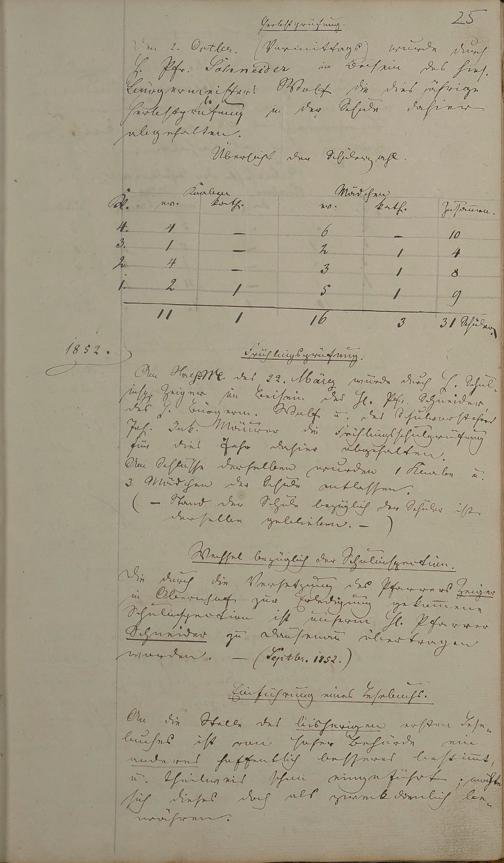 25
Herbstprüfung.
Den 2. Octbr. (Vormittags) wurde durch
H. Pfr. Schneider in Beisein des Hrn.
Bürgermeisters Wolf die dies jährige
Herbstprüfung in der Schule dahier
abgehalten.
Übersicht der Schülerzahl.
Knaben Mädchen
Kl. ev. kath. ev. kath. Zusammen.
4. 4 — 6 — 10
3. 1 — 2 1 4
2. 4 — 3 1 8
1. 2 1 5 1 9
11 1 16 3 31 Schüler
1852.
Frühlingsprüfung.
Am des 22. März wurde durch H. Schul-
insp. Zeiger im Beisein des H. Pfr. Schneider
des H. Bürgerm. Wolf u. des Schulvorsteher
Joh. Jak. die Frühlingsschulprüfung
für dies Jahr dahier abgehalten.
Am Schlusse derselben wurden 1 Knabe u.
3 Mädchen der Schule entlassen.
(— Stand der Schule bezüglich der Schüler ist
derselbe geblieben. —)
Wechsel bezüglich der Schulinspection.
Die durch die Versetzung des Pfarrers Zeiger
in zur Erledigung gekommene
Schulinspection ist unserm H. Pfarrer
Schneider zu Dausenau übertragen
worden. — (Septbr. 1852.)
Einführung eines Lesebuchs.
An die Stelle des bisherigen ersten Lese-
buches ist von hoher Behörde ein
anderes hoffentlich besseres bestimmt,
u. theilweis schon eingeführt; möchte
sich dieses doch als zweckdienlich be-
währen.